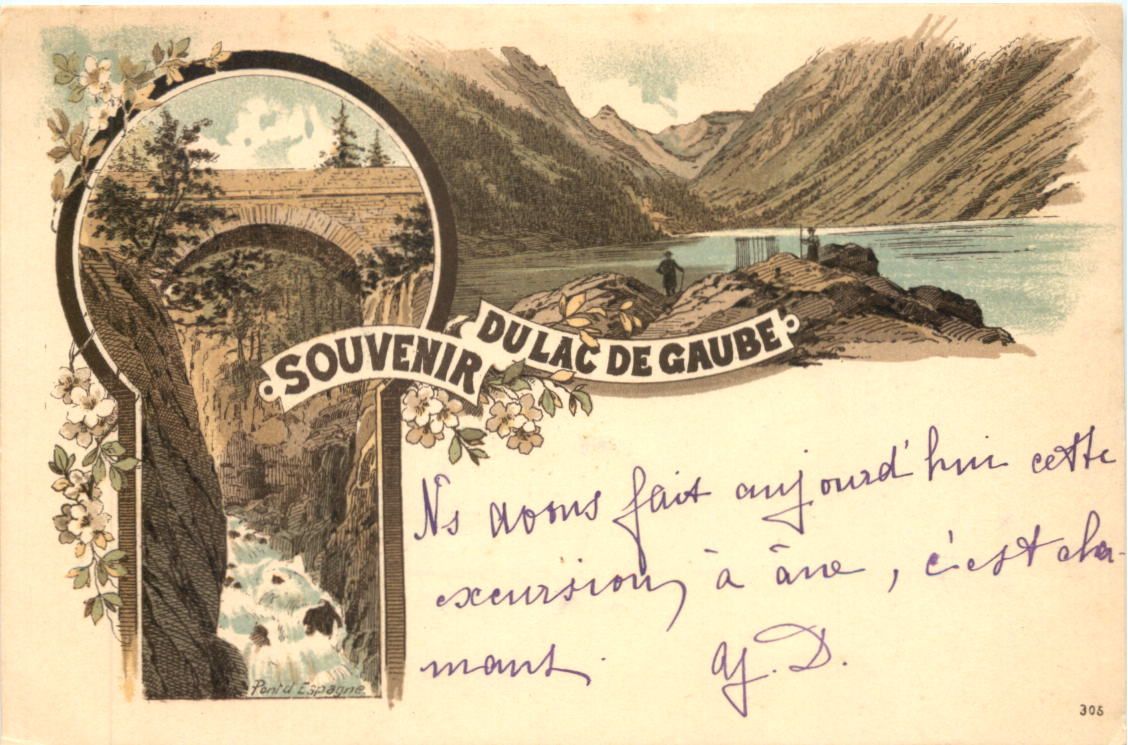 SOUVENIR
DU LAC DE GAUBE
Ns avons fait aujourd'hui cette
excursion, à âne, c'est char-
mant. G. D.
Pont d'Espagne
305